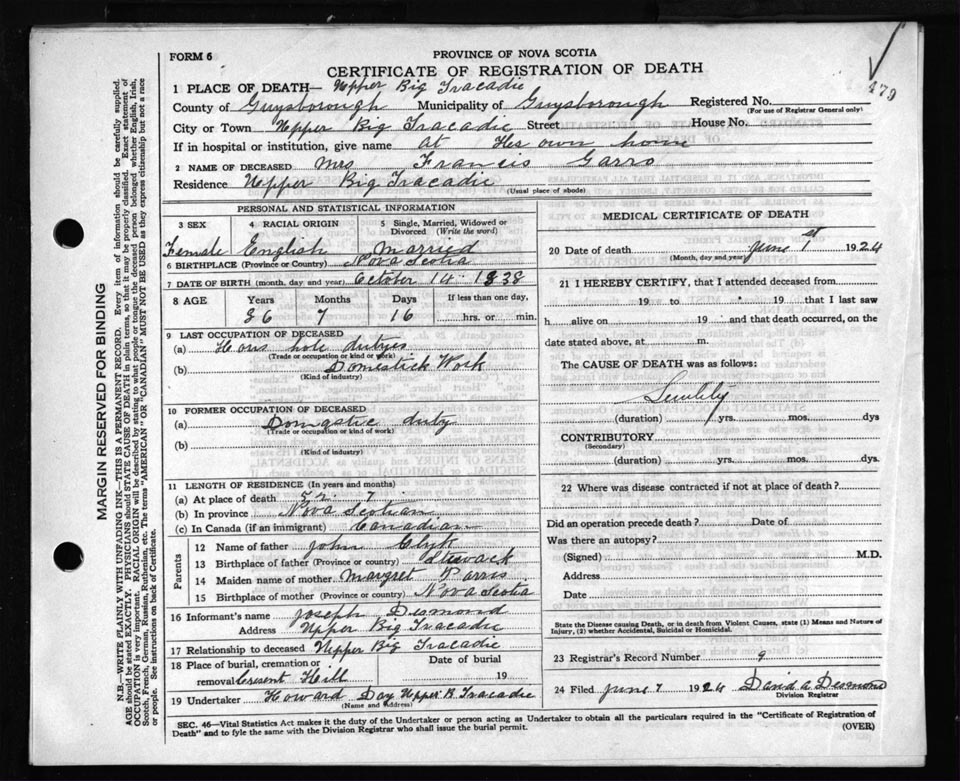 FORM 6
PROVINCE OF NOVA SCOTIA
CERTIFICATE OF REGISTRATION OF DEATH
479
1 PLACE OF DEATH— Upper Big Tracadie
County of Guysborough Municipality of Guysborough Registered No.
(For use of Registrar General only)
City or Town Upper Big Tracadie Street House No.
If in hospital or institution, give name At Hes own home
2 NAME OF DECEASED Mrs Francis Garro
Residence Upper Big Tracadie
(Usual place of abode)
PERSONAL AND STATISTICAL INFORMATION
3 SEX 4 RACIAL ORIGIN 5 Single, Married, Widowed or Divorced (Write the word)
Female English Married
6 BIRTHPLACE (Province or Country) Nova Scotia
7 DATE OF BIRTH (month, day, and year) October 14 1838
8 AGE Years Months Days If less than one day,
86 7 16 hrs. or min.
9 LAST OCCUPATION OF DECEASED
(a) Hous hole dutyes
(Trade or occupation or kind or work)
(b) Domestick Work
(Kind of industry)
10 FORMER OCCUPATION OF DECEASED
(a) Domgstic duty
(Trade or occupation or kind of work)
(b)
(Kind of industry)
11 LENGTH OF RESIDENCE (In years and months)
(a) At place of death 7
(b) In province Nova Scotian
(c) In Canada (if an immigrant) Canadian
Parents
12 Name of father John Clyk
13 Birthplace of father (Province or country)
14 Maiden name of mother Margret Parris
15 Birthplace of mother (Province or country) Nova Scotia
16 Informant's name Joseph Desmond
Address Upper Big Tracadie
17 Relationship to deceased Upper Big Tracadie
18 Place of burial, cremation or removal Cresent Hill Date of burial 19
19 Undertaker Howard Day Upper B. Tracadie
(Name and Address)
MEDICAL CERTIFICATE OF DEATH
20 Date of death June 1st 1924
(Month, day and year)
21 I HEREBY CERTIFY, that I attended deceased from
19 to 19 that I last saw
h alive on 19 and that death occurred, on the
date stated above, at m.
The CAUSE OF DEATH was as follows:
(duration) yrs. mos. dys
CONTRIBUTORY
(Secondary)
(duration) yrs. mos. dys.
22 Where was disease contracted if not at place of death?
Did an operation precede death? Date of
Was there an autopsy?
(Signed) M.D.
Address
Date
State the Disease causing Death, or in death from Violent Causes, state (1) Means and Nature of Injury, (2) whether Accidental, Suicidal or Homicidal.
23 Registrar's Record Number 9
24 Filed June 7 1924 David A Desmond
Division Registrar
SEC. 46—Vital Statistics Act makes it the duty of the Undertaker or person acting as Undertaker to obtain all the particulars required in the "Certificate of Registration of
Death" and to fyle the same with the Division Registrar who shall issue the burial permit. (OVER)
MARGIN RESERVED FOR BINDING
N.B.—WRITE PLAINLY WITH UNFADING INK—THIS IS A PERMANENT RECORD. Every item of information should be carefully supplied.
AGE should be stated EXACTLY. PHYSICIANS should STATE CAUSE OF DEATH in plain terms, so that it may be properly classified. Exact statement of
OCCUPATION is very important. RACIAL ORIGIN will be described by stating to what people or tongue the deceased person belonged whether English, Irish,
Scotch, French, German, Russian, Ruthenian, etc. The terms "AMERICAN" OR "CANADIAN" MUST NOT BE USED as they express citizenship but not a race
or people. See instructions on back of Certificate.